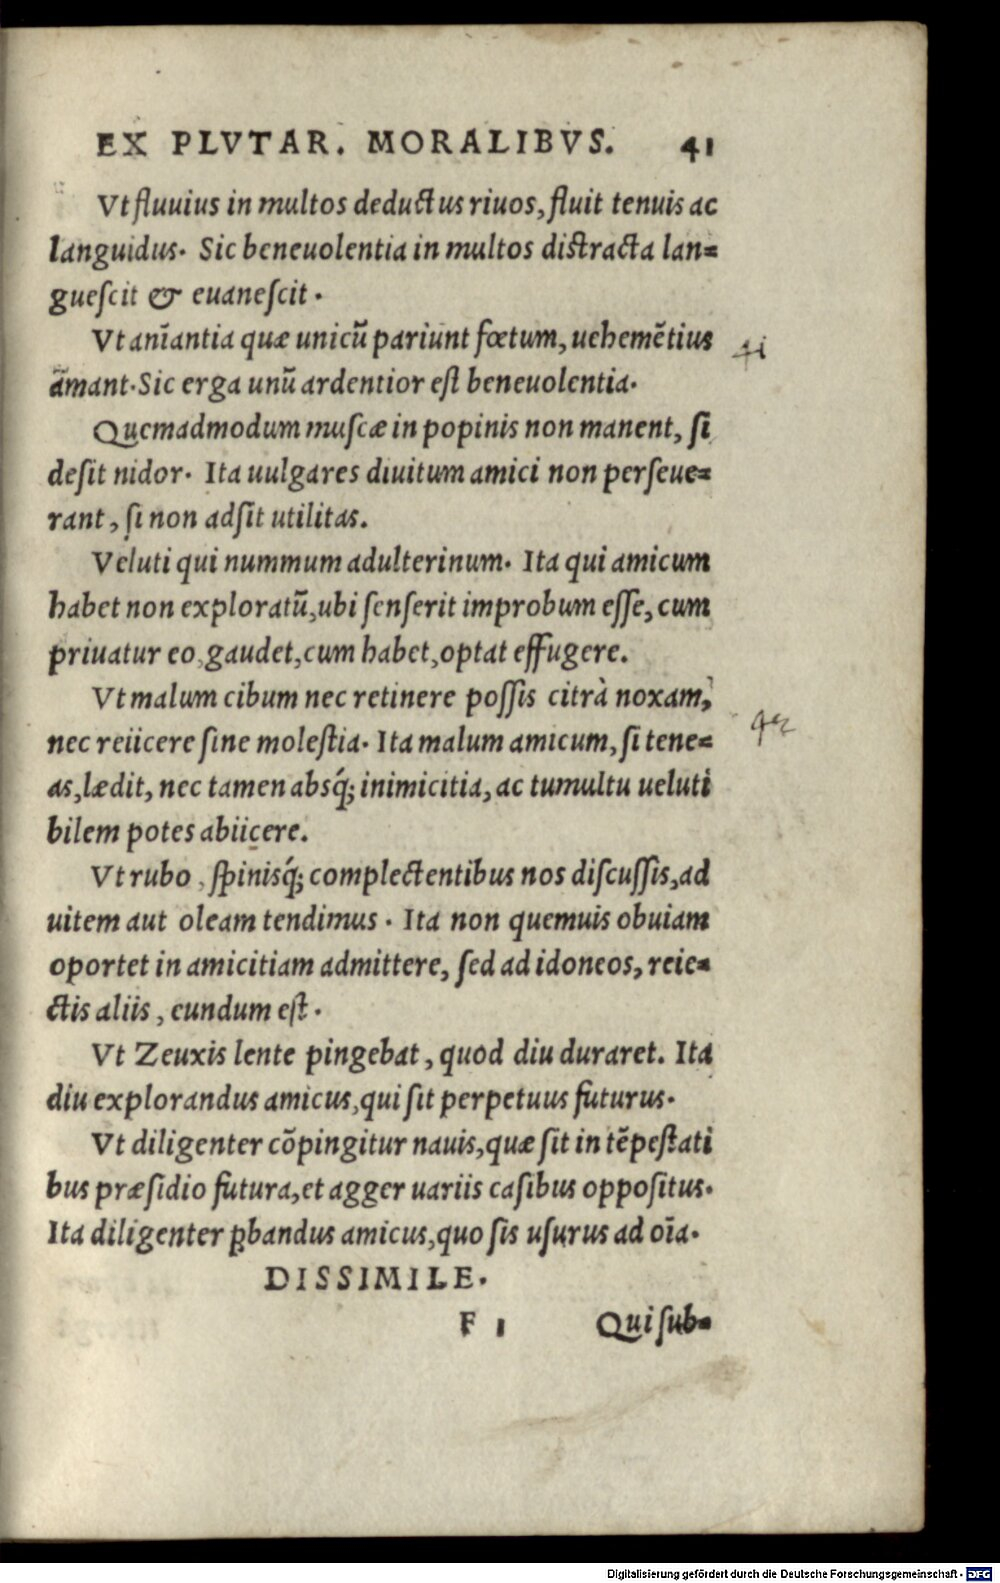 EX PLVTAR. MORALIBVS. 41
Vt fluuius in multos deductus riuos, fluit tenuis ac
languidus. Sic beneuolentia in multos distracta lan=
guescit & euanescit.
Vt anīantia quæ unicũ pariunt fœtum, uehemẽtius
amant. Sic erga unũ ardentior est beneuolentia.
Quemadmodum muscæ in popinis non manent, si
desit nidor. Ita uulgares diuitum amici non perseue=
rant, si non adsit utilitas.
Veluti qui nummum adulterinum. Ita qui amicum
habet non exploratũ, ubi senserit improbum esse, cum
priuatur eo, gaudet, cum habet, optat effugere.
Vt malum cibum nec retinere possis citrà noxam,
nec reiicere sine molestia. Ita malum amicum, si tene=
as, lædit, nec tamen absq́; inimicitia, ac tumultu ueluti
bilem potes abiicere.
Vt rubo, spinisq́; complectentibus nos discussis, ad
uitem aut oleam tendimus. Ita non quemuis obuiam
oportet in amicitiam admittere, sed ad idoneos, reie=
ctis aliis, eundum est.
Vt Zeuxis lente pingebat, quod diu duraret. Ita
diu explorandus amicus, qui sit perpetuus futurus.
Vt diligenter cõpingitur nauis, quæ sit in tẽpestati
bus præsidio futura, et agger uariis casibus oppositus.
Ita diligenter ꝓbandus amicus, quo sis usurus ad oīa.
DISSIMILE.
F 1 Qui sub=
41
42
Digitalisierung gefördert durch die Deutsche Forschungsgemeinschaft - DFG